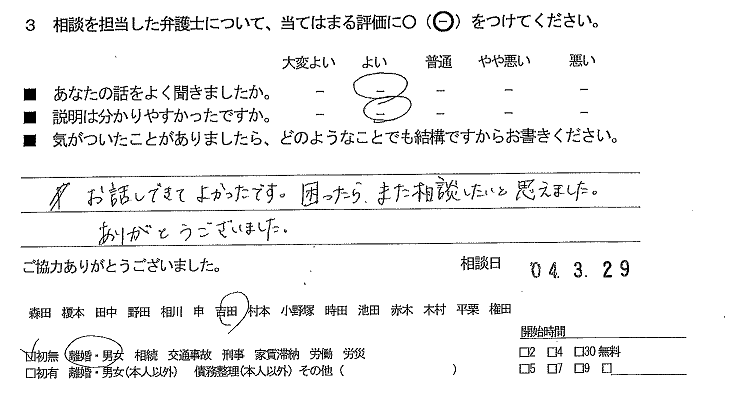 3 相談を担当した弁護士について、当てはまる評価に〇(㊀)をつけてください。
大変よい よい 普通 やや悪い 悪い
■ あなたの話をよく聞きましたか。 － － － － －
■ 説明は分かりやすかったですか。 － － － － －
■ 気がついたことがありましたら、どのようなことでも結構ですからお書きください。
お話しできてよかったです。困ったら、また相談したいと思えました。
ありがとうございました。
ご協力ありがとうございました。 相談日 '04. 3. 29
森田 榎本 田中 野田 相川 申 吉田 村本 小野塚 時田 池田 赤木 木村 平栗 権田
開始時間
☑初無 離婚・男女 相続 交通事故 刑事 家賃滞納 労働 労災 □2 □4 □30 無料
□初有 離婚・男女(本人以外) 債務整理(本人以外) その他 ( ) □5 □7 □9 □